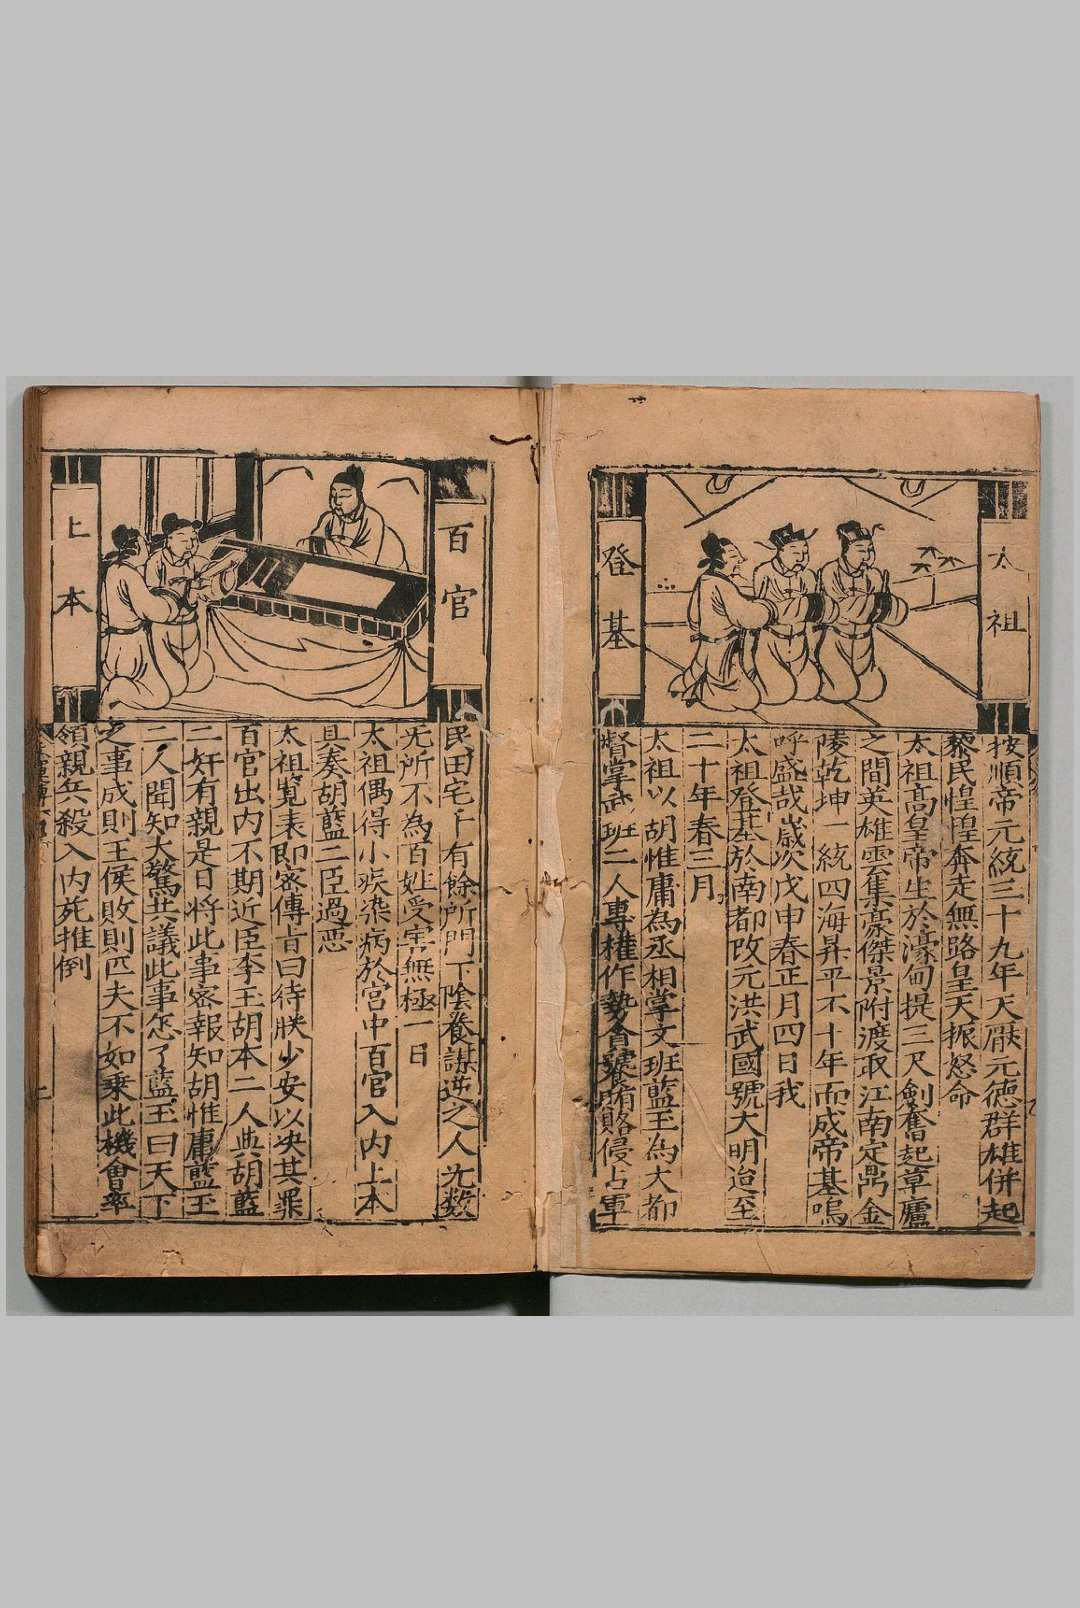 太祖
登基
按順帝元統三十九年天厭元德群雄併起
黎民惶惶奔走無路皇天振怒命
太祖高皇帝生於濠甸提三尺劍奮起草廬
之間英雄雲集豪傑景附渡取江南定鼎金
陵乾坤一統四海昇平不十年而成帝基嗚
呼盛哉歲次戊申春正月四日我
太祖登基於南都改元洪武國號大明迨至
二十年春三月
太祖以胡惟庸為丞相掌文班藍玉為大都
督掌武班二人專權作勢貪饕賄賂侵占軍
百官
上本
民田宅十有餘所門下陰養謀逆之人尤数
无所不為百姓受害無極一日
太祖偶得小疾染病於宮中百官入内上本
具奏胡藍二臣過惡
太祖覧表即密傳旨曰待朕少安以决其罪
百官出内不期近臣李玉胡本二人與胡藍
二奸有親是日將此事密報知胡惟庸藍玉
二人聞知大驚共議此事怎了藍玉曰天下
之事成則王侯敗則匹夫不如乗此機會率
領親兵殺入内苑推倒